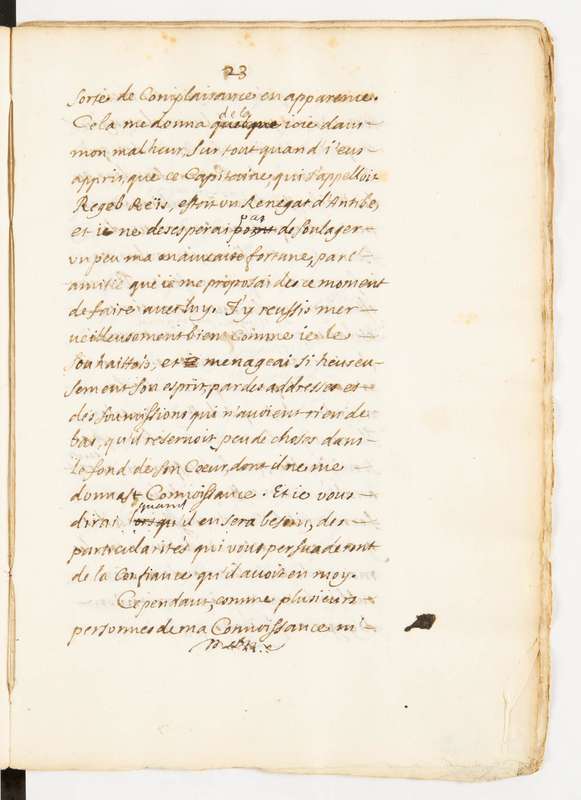 23
sorte de Complaisance en apparence.
de la
Cela me donna quelque ioie dans
mon malheur, sur tout quand i'eus
appris, que ce Capitaine, qui s'appelloit
Regeb Reïs, estoit un Renegat d'Antibe,
pas
et ie ne desesperai point de soulager
un peu ma mauvaise fortune, par l'
amitié que ie me proposai des ce moment
de faire avec luy. J'y reussis mer
veilleusement bien comme ie le
souhaittois, et menageai si heureu
sement son esprit, par des addresses et
des soumissions qui n'avoient rien de
bas, qu'il reservoit peu de choses dans
le fond de son Coeur, dont il ne me
donnast Connoissance. Et ie vous
quand
dirai lorsqu'il en sera besoin, des
particularités qui vous persuaderont
de la Confiance qu'il avoit en moy.
Cependant, comme plusieurs
personnes de ma Connoissance m'